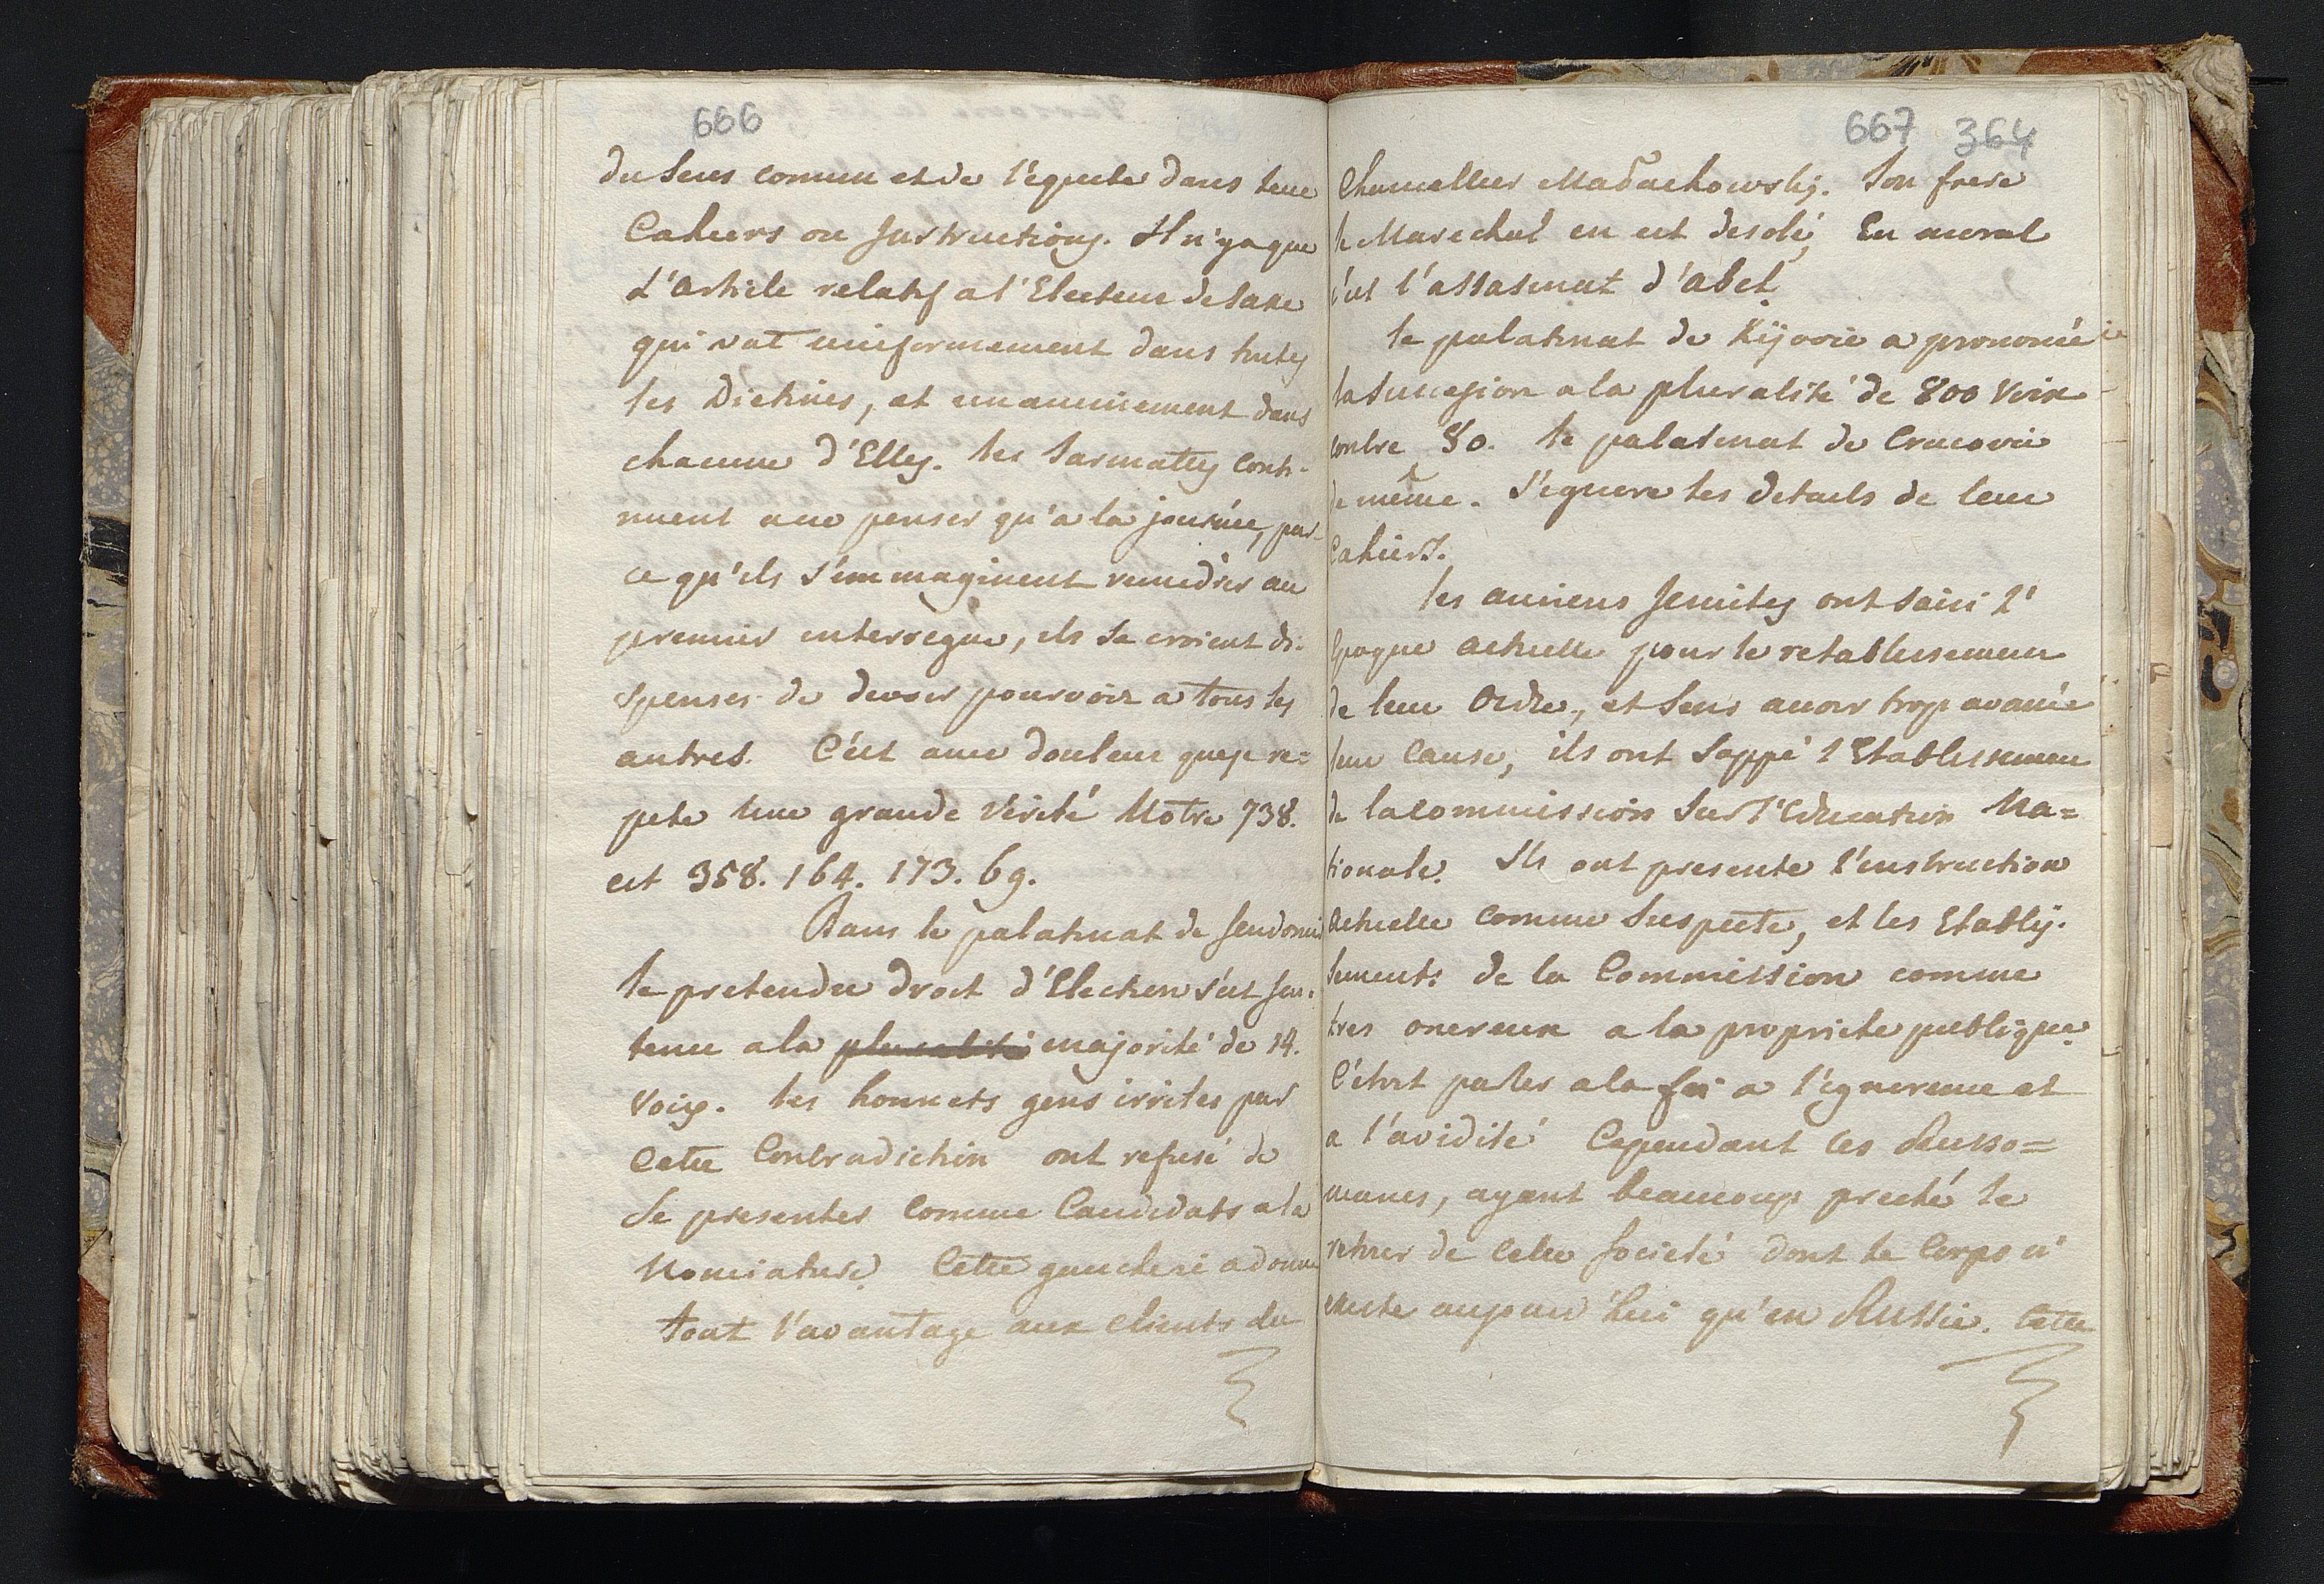 666
du Sens comun et de l'equite dans leur
Cahiers ou Instructions. Il n'ya que
L'Article relatif a l'Electeur de Saxe
qui vat uniformement dans toutes
les Dietines, et unanimement dans
chacune d'Elles. les Sarmates conti-
nuent a ne penser qu'a la journée, par-
ce qu'ils s'immaginent remedier au
premier interregne, ils se croient di-
spenses de devoir pourvoir a tous les
autres. C'est avec douleur que je re=
pete une grande Verité Notre 738.
est 358. 164. 173. 69.
Dans le palatinat de Sendomir
le pretendu droit d'Election s'est sou-
tenu a la pluralité majorité de 14.
voix. les honnets gens irrites par
Cette Contradiction ont refusé de
se presenter comme Candidats a la
Nonciature. Cette gaucherie a donné
tout l'avantage aux clients du
667 364
Chancellier Małachowsky. Son frere
le Marechal en est desolé, En moral
c'est l'assasinat d'Abel.
le palatinat de Kijovie a prononcé
la Succession a la pluralité de 800 Voix
contre 80. le palatinat de Cracovie
de même. J'ignore les details de leur
Cahiers.
les anciens Jesuites ont saisi l'
Epoque actuelle pour le retablissement
de leur Ordre, et sens avoir trop avancée
leur Cause, ils ont sappé l'Etablissement
de la commission sur l'Education Na=
tionale. Ils ont presente l'instruction
actuelle comme suspecte, et les Etablis-
sements de la Commission comme
tres onereux a la propriete publique.
C'etoit parler a la foi a l'ignorence et
a l'avidité Cependant les Russo=
manes, ayant beaucoup preché le
retour de cette Societé dont le Corps n'
existe aujourd'hui qu'en Russie. Cette